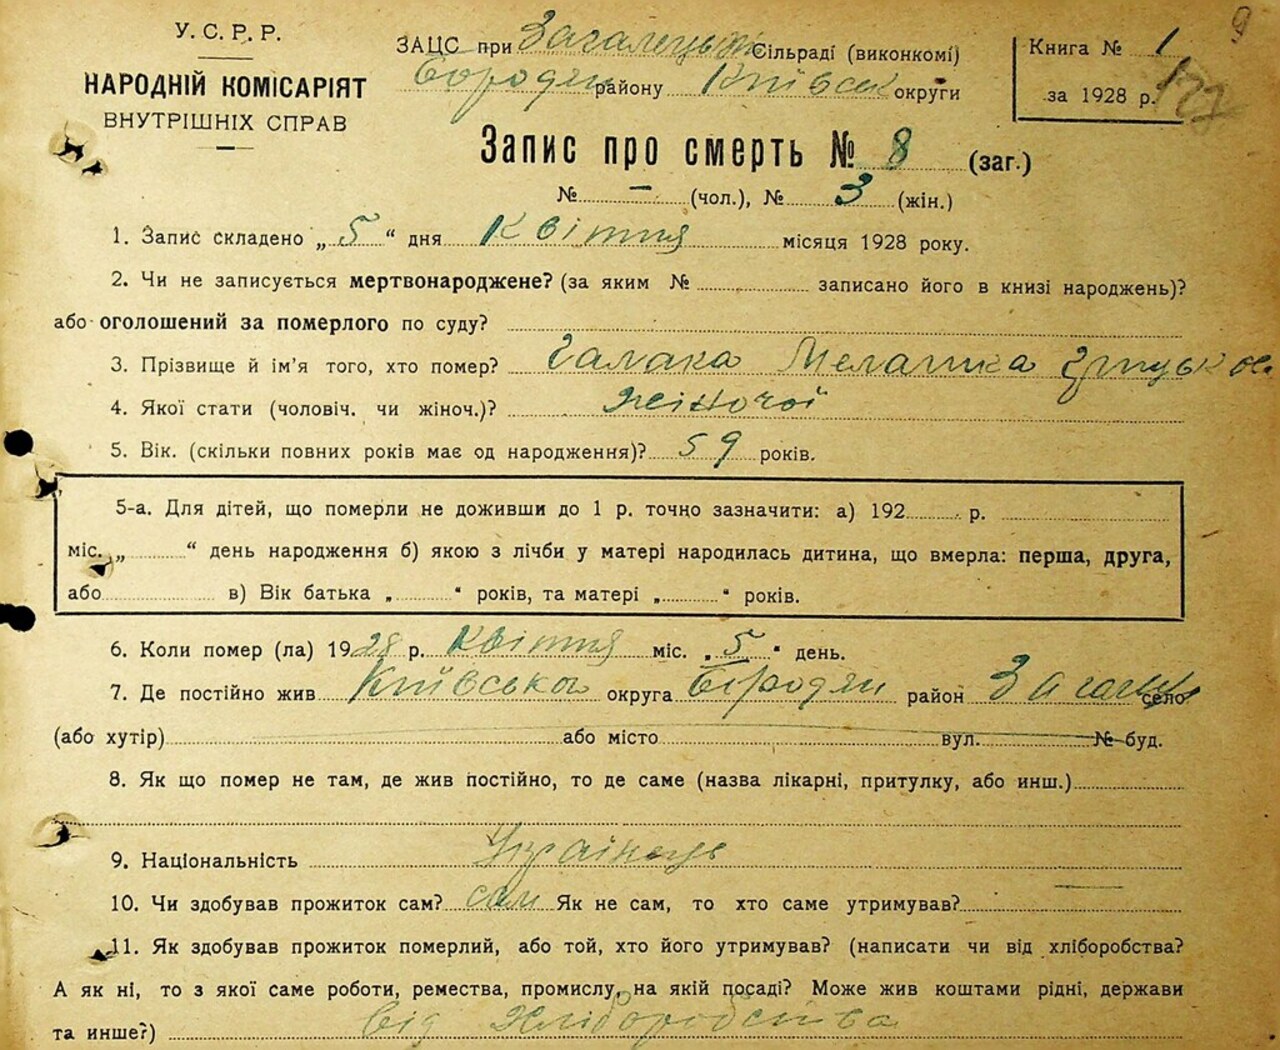 У.С.Р.Р.
НАРОДНІЙ КОМІСАРІЯТ
ВНУТРІШНІХ СПРАВ
ЗАЦС при Загалецькій Сільраді (виконкомі)
Бородян району Київськ округи
Книга № 1
за 1928 р.
9
177
Запис про смерть № 8 (заг.)
№ — (чол.), № 3 (жін.)
1. Запис складено „5“ дня Квітня місяця 1928 року.
2. Чи не записується мертвонароджене? (за яким № записано його в книзі народжень)?
або оголошений за померлого по суду?
3. Прізвище й ім'я того, хто помер? Галака Меланка
4. Якої стати (чоловіч. чи жіноч.)? Жіночої
5. Вік. (скільки повних років має од народження)? 59 років.
5-а. Для дітей, що померли не доживши до 1 р. точно зазначити: а) 192 р.
міс. „ “ день народження б) якою з лічби у матері народилась дитина, що вмерла: перша, друга,
або в) Вік батька „ “ років, та матері „ “ років.
6. Коли помер (ла) 1928 р. Квітня міс. „5“ день.
7. Де постійно жив Київського округа Бородян район Загальці село
(або хутір) або місто вул. № буд.
8. Як що помер не там, де жив постійно, то де саме (назва лікарні, притулку, або инш.)
9. Національність Українець
10. Чи здобував прожиток сам? сам Як не сам, то хто саме утримував? —
11. Як здобував прожиток померлий, або той, хто його утримував? (написати чи від хліборобства?
А як ні, то з якої саме роботи, ремества, промислу, на якій посаді? Може жив коштами рідні, держави
та инше?) від хліборобства